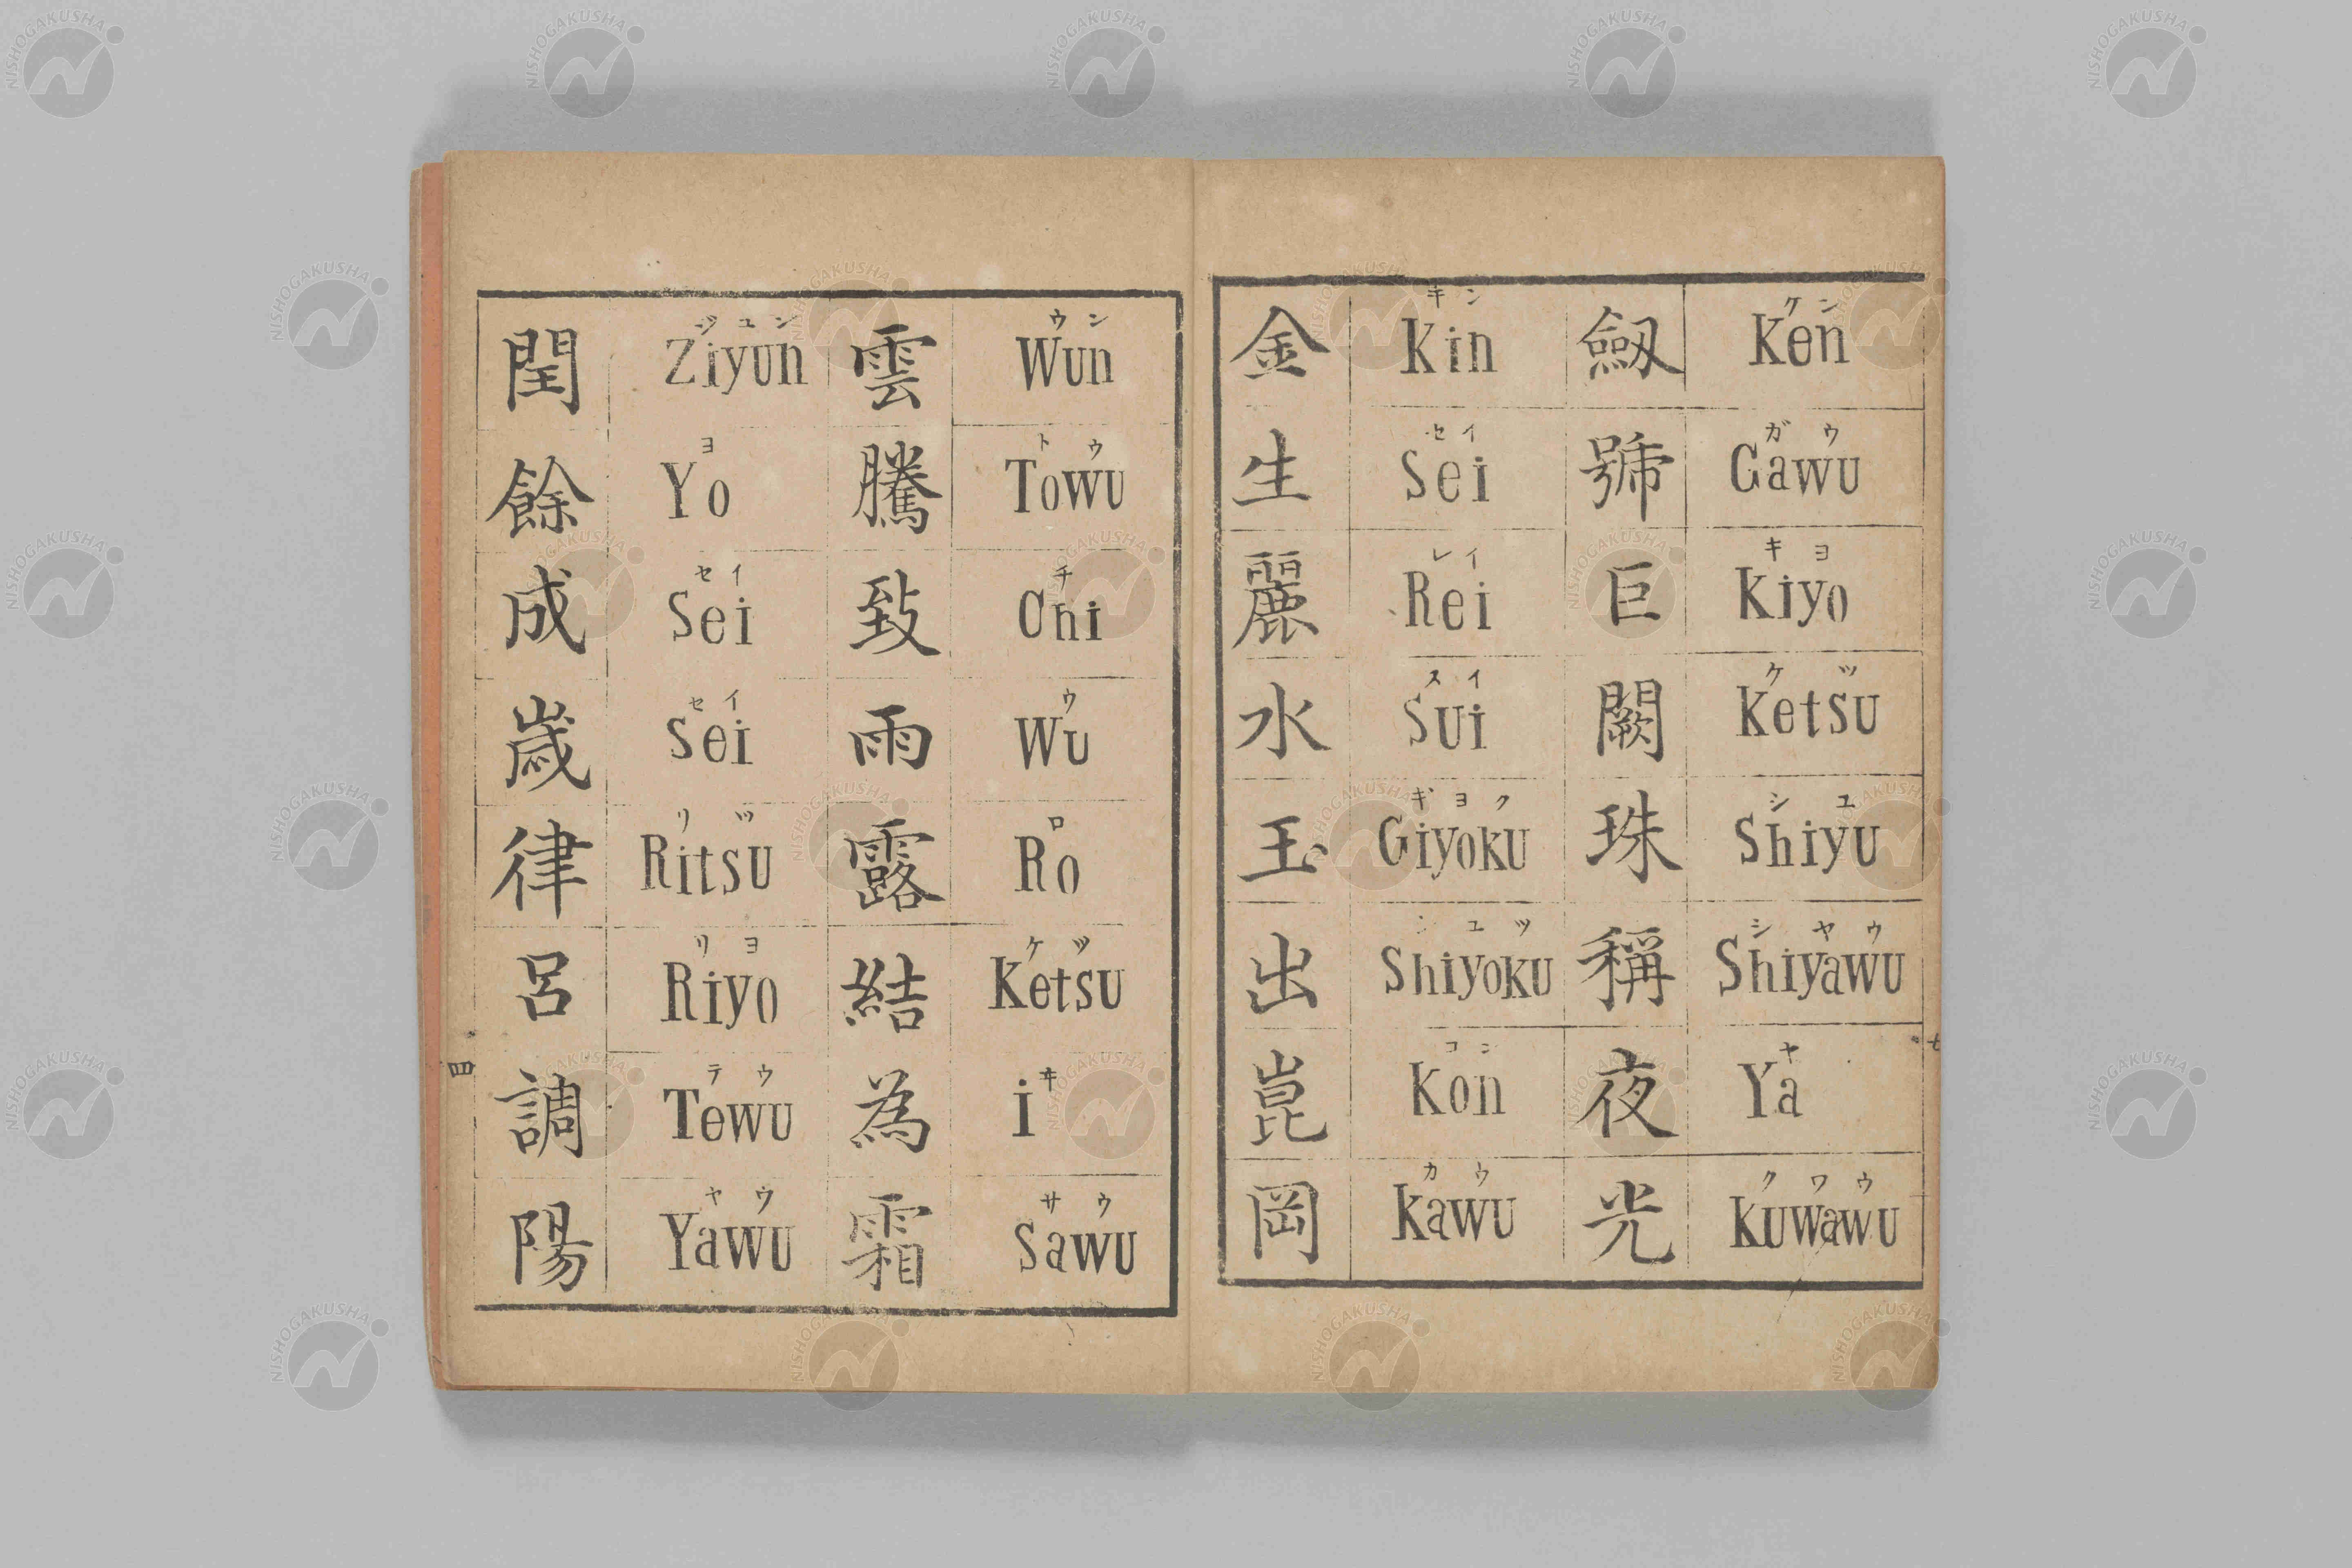 閏餘成歳律呂調陽
ジユン ヨ セイ セイ リツ リヨ テウ ヤウ
Ziyun Yo Sei Sei Ritsu Riyo Tewu Yawu
雲騰致雨露結為霜
ウン トウ チ ウ ロ ケツ ヰ サウ
Wun Towu Chi Wu Ro Ketsu i Sawu
四
金生麗水玉出崑岡
キン セイ レイ スイ ギヨク シユツ コン カウ
Kin Sei Rei Sui Giyoku Shiyoku Kon Kawu
劒號巨闕珠稱夜光
ケン ガウ キヨ ケツ シユ シヤウ ヤ クワウ
Ken Gawu Kiyo Ketsu Shiyu Shiyawu Ya Kuwawu
NISHOGAKUSHA